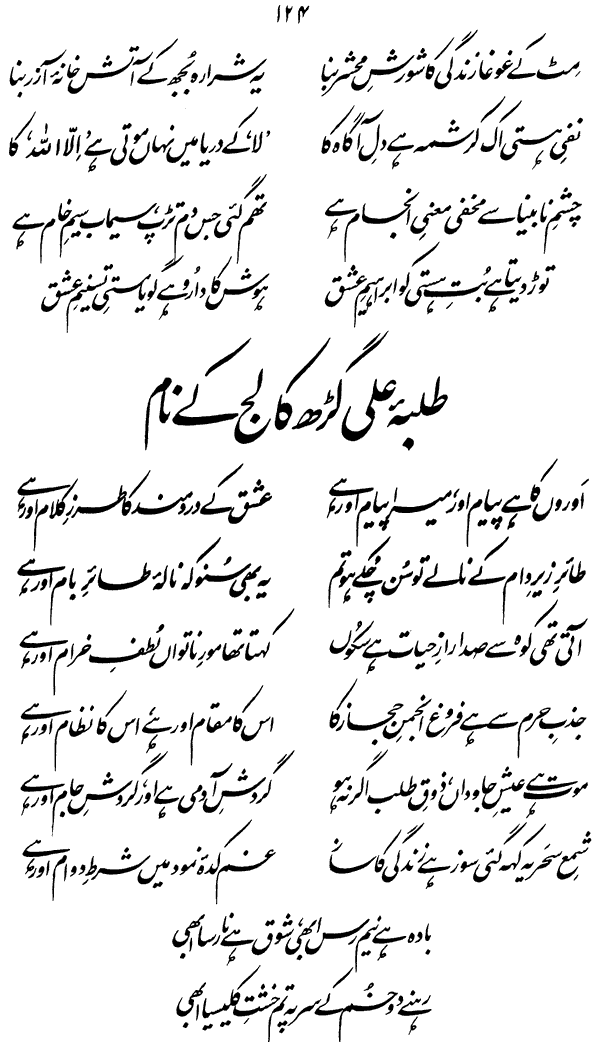 ۱۲۴
مِٹ کے غوغا زندگی کا شورشِ محشر بنا یہ شرارہ بُجھ کے آتش خانۂ آزر بنا
نفیِ ہستی اک کرشمہ ہے دلِ آگاہ کا ’لا‘ کے دریا میں نہاں موتی ہے ’اِلّا اللہ‘ کا
چشمِ نابینا سے مخفی معنیِ انجام ہے تھم گئی جس دم تڑپ، سیماب سیمِ خام ہے
توڑ دیتا ہے بُتِ ہستی کو ابراہیمِ عشق ہوش کا دارُو ہے گویا مستیِ تسنیمِ عشق
طلبۂ علی گڑھ کالج کے نام
اَوروں کا ہے پیام اور، میرا پیام اور ہے عشق کے درد مند کا طرزِ کلام اور ہے
طائرِ زیرِ دام کے نالے تو سُن چُکے ہو تم یہ بھی سُنو کہ نالۂ طائرِ بام اور ہے
آتی تھی کوہ سے صدا رازِ حیات ہے سکُوں کہتا تھا مورِ ناتواں لُطفِ خرام اور ہے
جذبِ حرم سے ہے فروغ انجمنِ حجاز کا اس کا مقام اور ہے، اس کا نظام اور ہے
موت ہے عیشِ جاوداں، ذوقِ طلب اگر نہ ہو گردشِ آدمی ہے اور، گردشِ جام اور ہے
شمعِ سحر یہ کہہ گئی سوز ہے زندگی کا ساز غم کدۂ نمود میں شرطِ دوام اور ہے
بادہ ہے نیم رس ابھی، شوق ہے نارسا ابھی
رہنے دو خُم کے سر پہ تم خشتِ کلیسیا ابھی